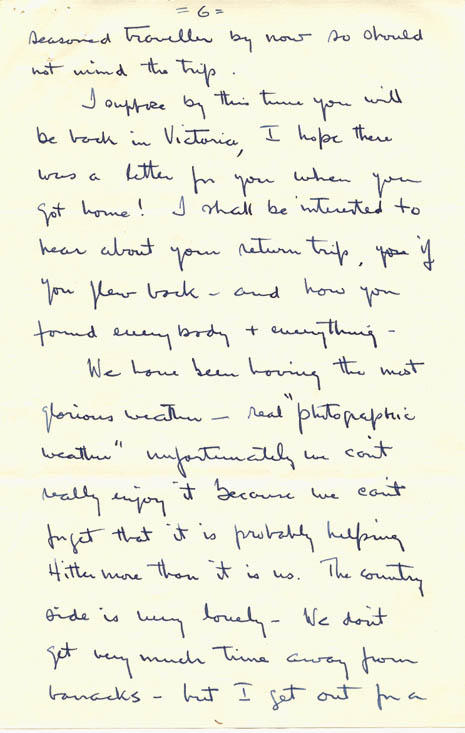 = 6 =
seasoned traveller by now so should
not mind the trip.
I suppose by this time you will
be back in Victoria, I hope there
was a letter for you when you
got home! I shall be interested to
hear about your return trip, if
you flew back - and how you
found everybody + everything -
We have been having the most
glorious weather - real "photographic
weather" unfortunately we can't
really enjoy it because we can't
forget that it is probably helping
Hitler more than it is us. The country
side is very lovely - We don't
get very much time away from
barracks - but I get out for a